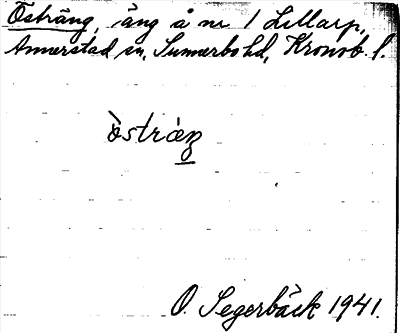 Östräng, äng å nr 1 Lillarp,
Annerstad sn, Sunnerbo hd, Kronob. l.
òstráŋ
O. Segerbäck 1941.